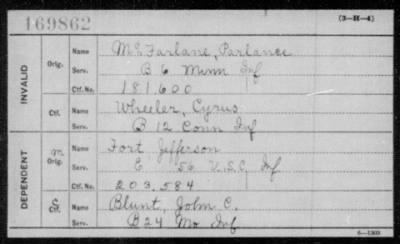 169862
(3-H-4)
INVALID
Orig.
Name McFarlane, Parlance
Serv. B 6 Minn Inf
Ctf. No. 181.600
Ctf.
Name Wheeler, Cyrus
Serv. B 12 Conn Inf
DEPENDENT
M Orig.
Name Fort, Jefferson
Serv. E 56 U.S.C. Inf
Ctf. No. 203.584
C Ctf.
Name Blunt, John C.
Serv. B 24 Mo Inf
6—1303